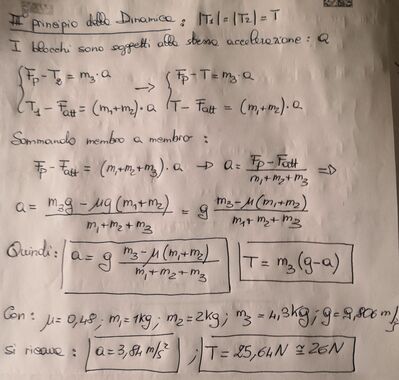 III principio della Dinamica : |T₁| = |T₂| = T
I blocchi sono soggetti alla stessa accelerazione : a
{ Fp - T₂ = m₃·a → { Fp - T = m₃·a
{ T₁ - Fatt = (m₁+m₂)·a { T - Fatt = (m₁+m₂)·a
Sommando membro a membro :
Fp - Fatt = (m₁+m₂+m₃)·a → a = (Fp - Fatt)/(m₁+m₂+m₃) ⇒
a = (m₃g - μg(m₁+m₂))/(m₁+m₂+m₃) = g (m₃ - μ(m₁+m₂))/(m₁+m₂+m₃)
Quindi : a = g (m₃ - μ(m₁+m₂))/(m₁+m₂+m₃) T = m₃(g-a)
Con : μ = 0,48 ; m₁ = 1kg ; m₂ = 2kg ; m₃ = 4,3kg ; g = 9,806 m/s
si ricava : a = 3,84 m/s² ; T = 25,64N ≅ 26N